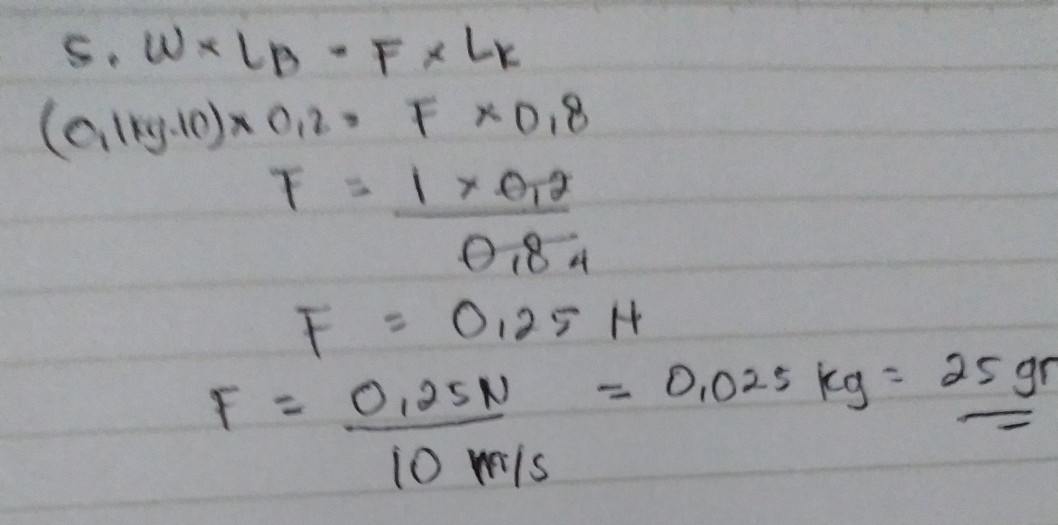 5. W × LB = F × LK
(0,1kg.10) × 0,2 = F × 0,8
F = 1 × 0,2
0,8 4
F = 0,25 N
F = 0,25N = 0,025 kg = 25 gr
10 m/s